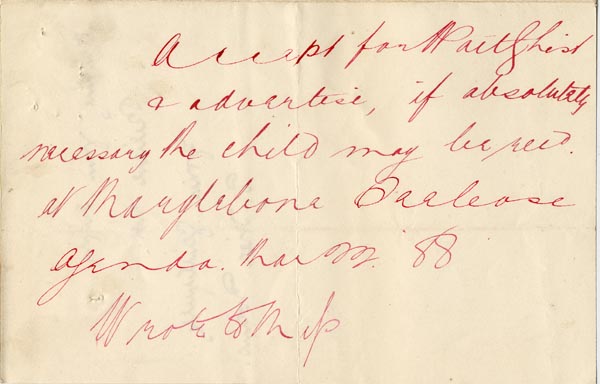 Accept for Wait[g] List
& advertise, if absolutely
necessary the child may be recd.
at Marylebone Enclose
agenda. Mar 88
Wrote to